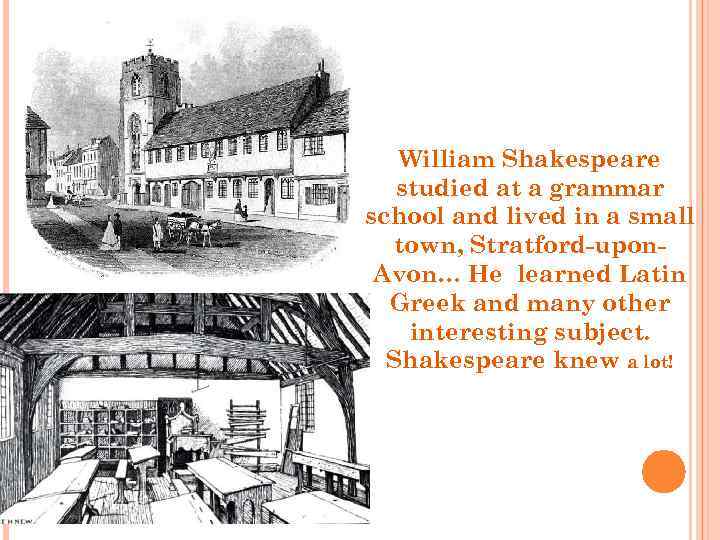 William Shakespeare
studied at a grammar
school and lived in a small
town, Stratford-upon-
Avon... He learned Latin
Greek and many other
interesting subject.
Shakespeare knew a lot!
EHNEW.